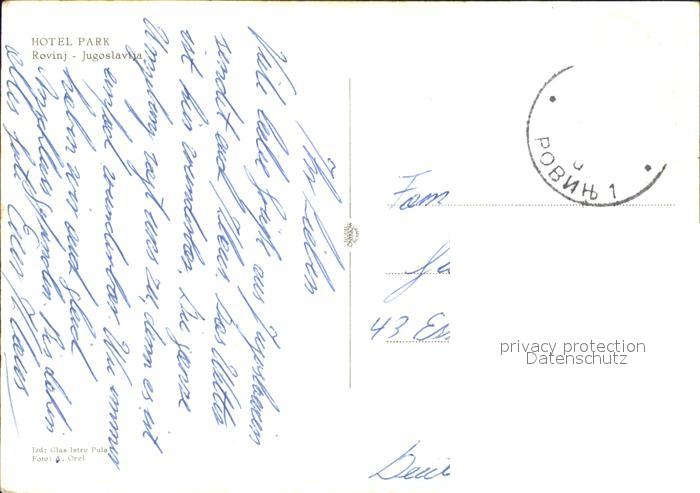 HOTEL PARK
Rovinj - Jugoslavija
Ihr Lieben
Viele liebe Grüße aus Jugoslawien
sendet euch Klaus. Das Wetter
ist hier wunderbar. Die ganze
Umgebung sagt uns zu, denn es ist
einfach wunderbar. Wie immer
haben wir auch gleich
Anschluss gefunden. Bis dahin
alles gute Euer Klaus
Izd: Glas Istre Pula
Foto: A. Orel
РОВИЊ 1
Fam
43 Es
privacy protection
Datenschutz